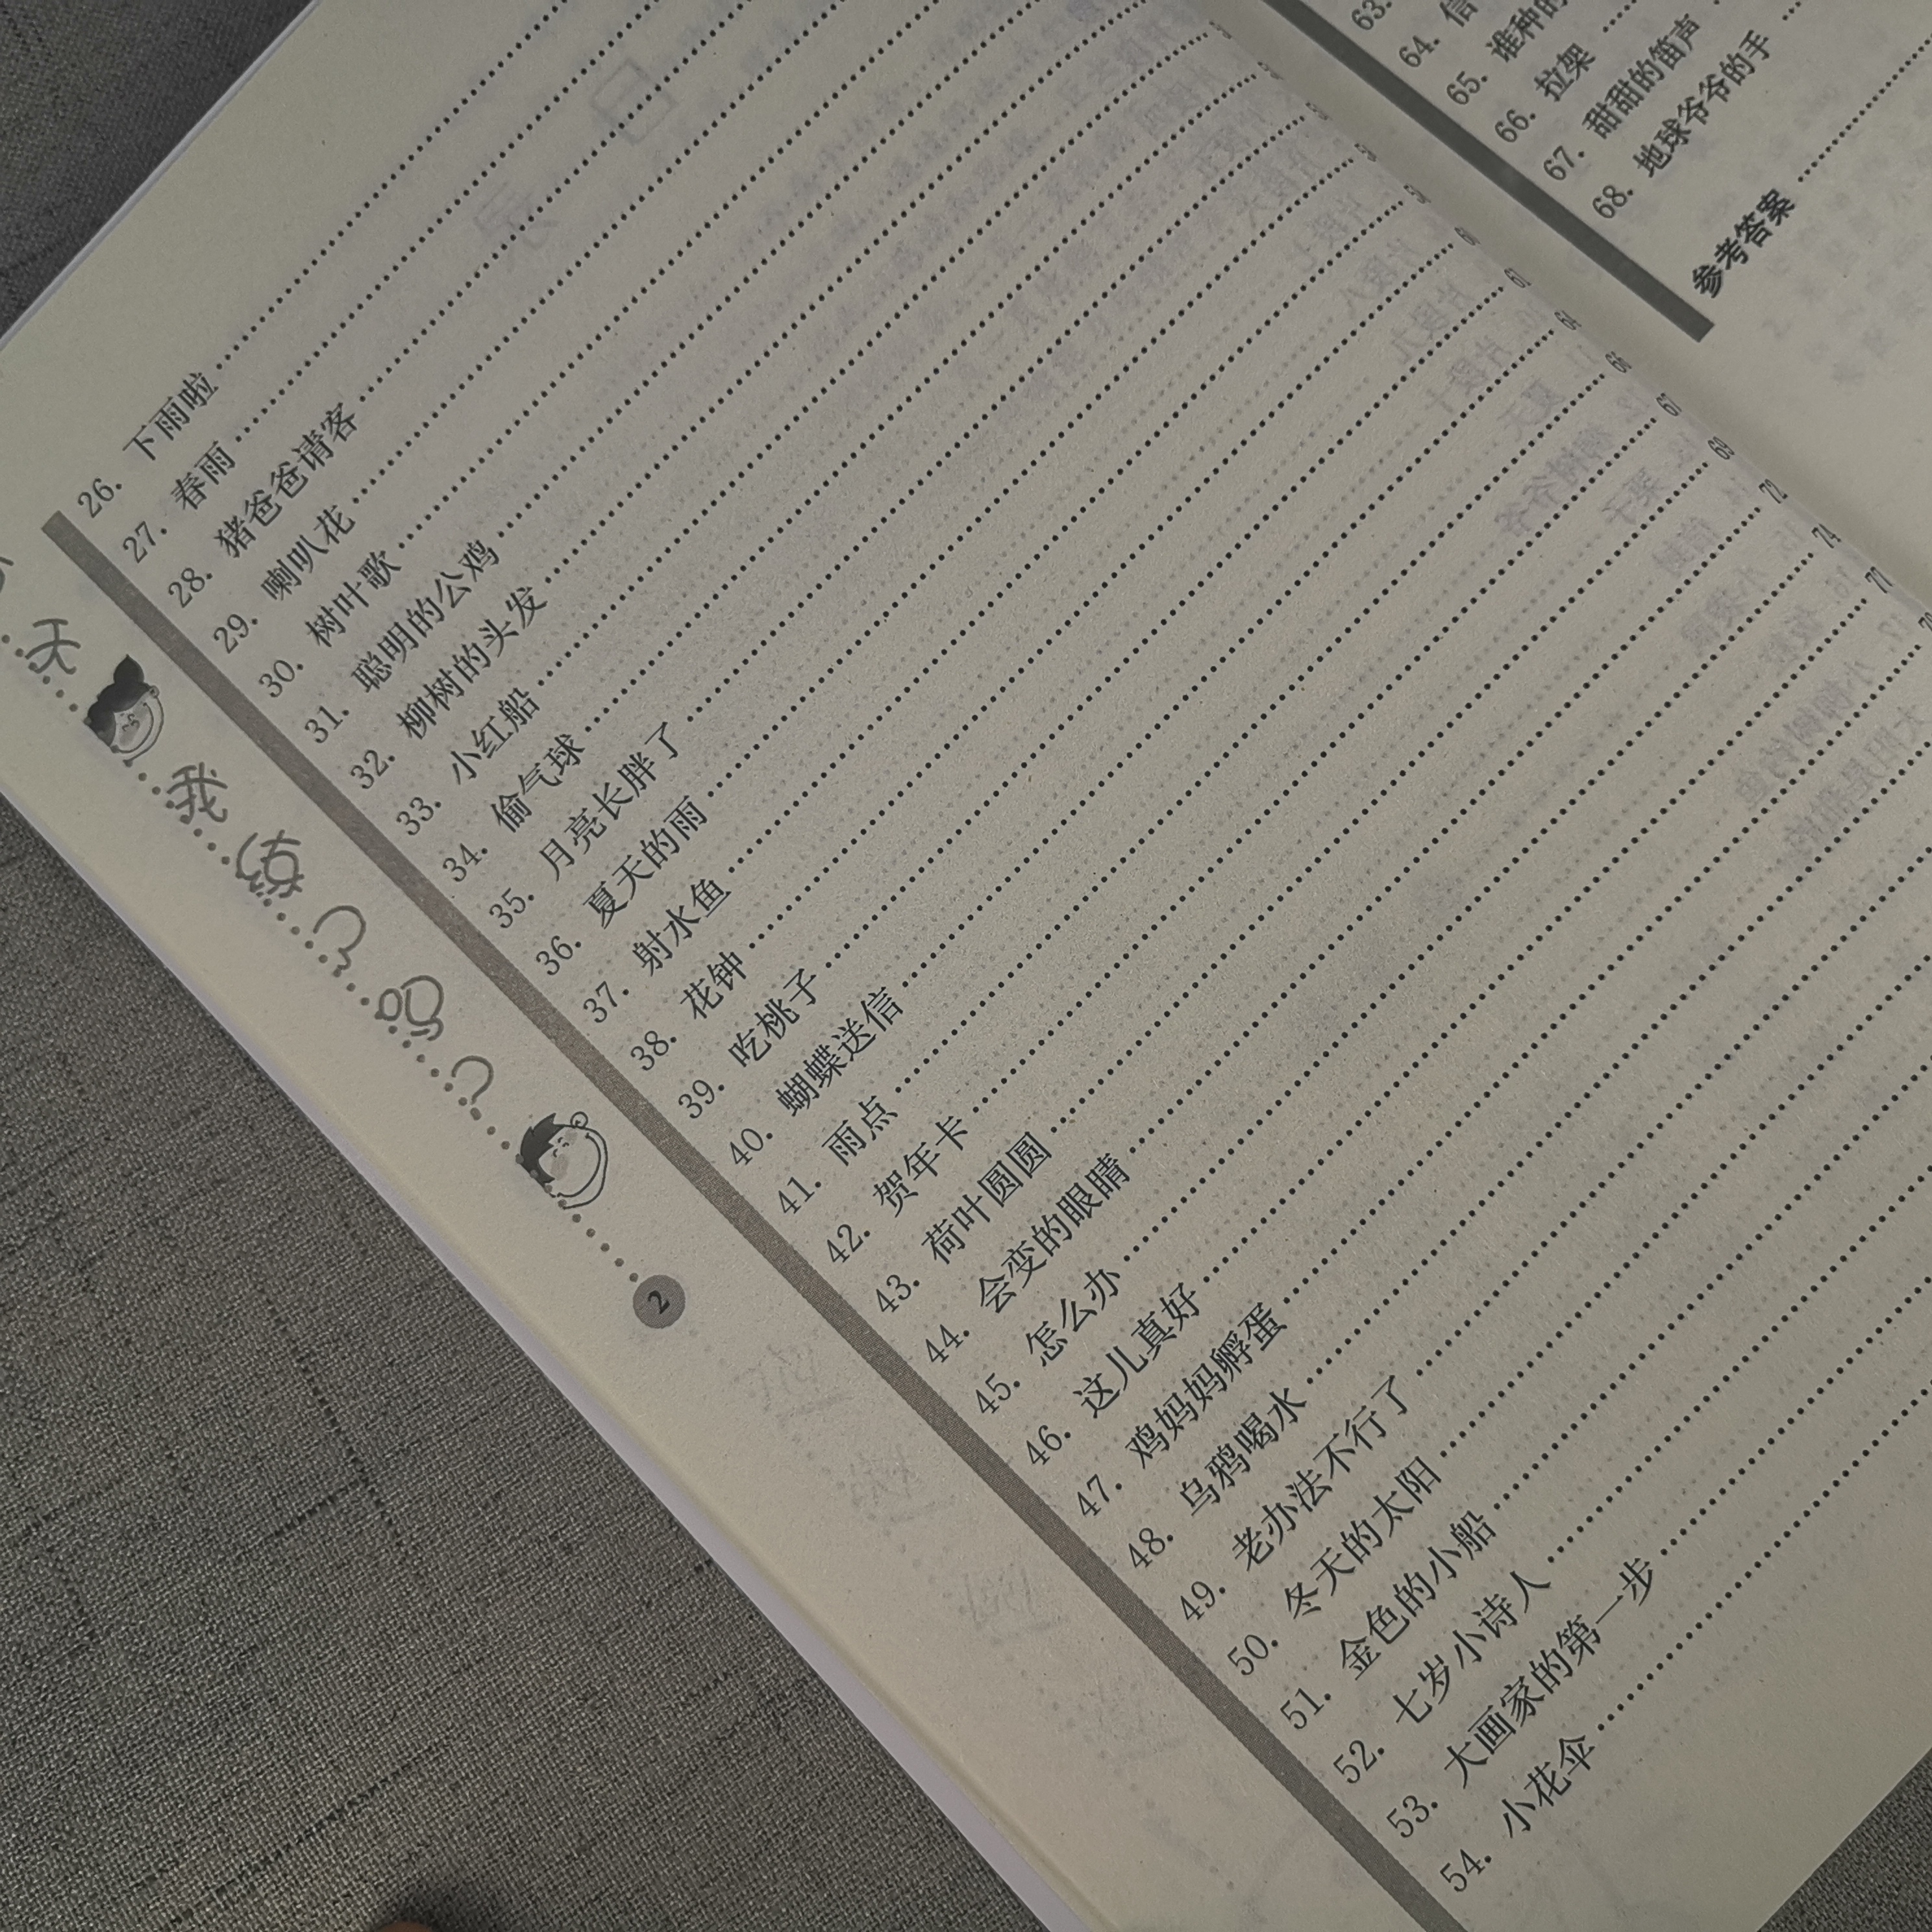 26. 下雨啦
27. 春雨
28. 猪爸爸请客
29. 喇叭花
30. 树叶歌
31. 聪明的公鸡
32. 柳树的头发
33. 小红船
34. 偷气球
35. 月亮长胖了
36. 夏天的雨
37. 射水鱼
38. 花钟
39. 吃桃子
40. 蝴蝶送信
41. 雨点
42. 贺年卡
43. 荷叶圆圆
44. 会变的眼睛
45. 怎么办
46. 这儿真好
47. 鸡妈妈孵蛋
48. 乌鸦喝水
49. 老办法不行了
50. 冬天的太阳
51. 金色的小船
52. 七岁小诗人
53. 大画家的第一步
54. 小花伞
2
63.
64. 信
65. 谁种的
66. 拉架
67. 甜甜的笛声
68. 地球爷爷的手
参考答案